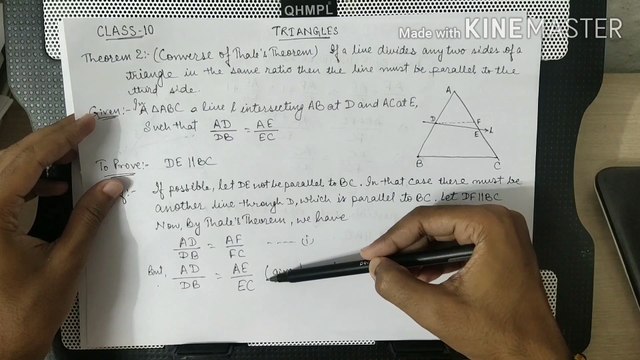 QHMPL
Made with KINEMASTER
CLASS-10 TRIANGLES
Theorem 2:- (Converse of Thale's Theorem) If a line divides any two sides of a
triangle in the same ratio then the line must be parallel to the
third side.
Given:- In A ΔABC a line l intersecting AB at D and AC at E,
Such that AD/DB = AE/EC
A
D F
E l
B C
To Prove:- DE || BC
If possible, let DE not be parallel to BC. In that case there must be
another line through D, which is parallel to BC. Let DF || BC
Now, By Thale's Theorem, we have
AD/DB = AF/FC ----- (i)
But, AD/DB = AE/EC